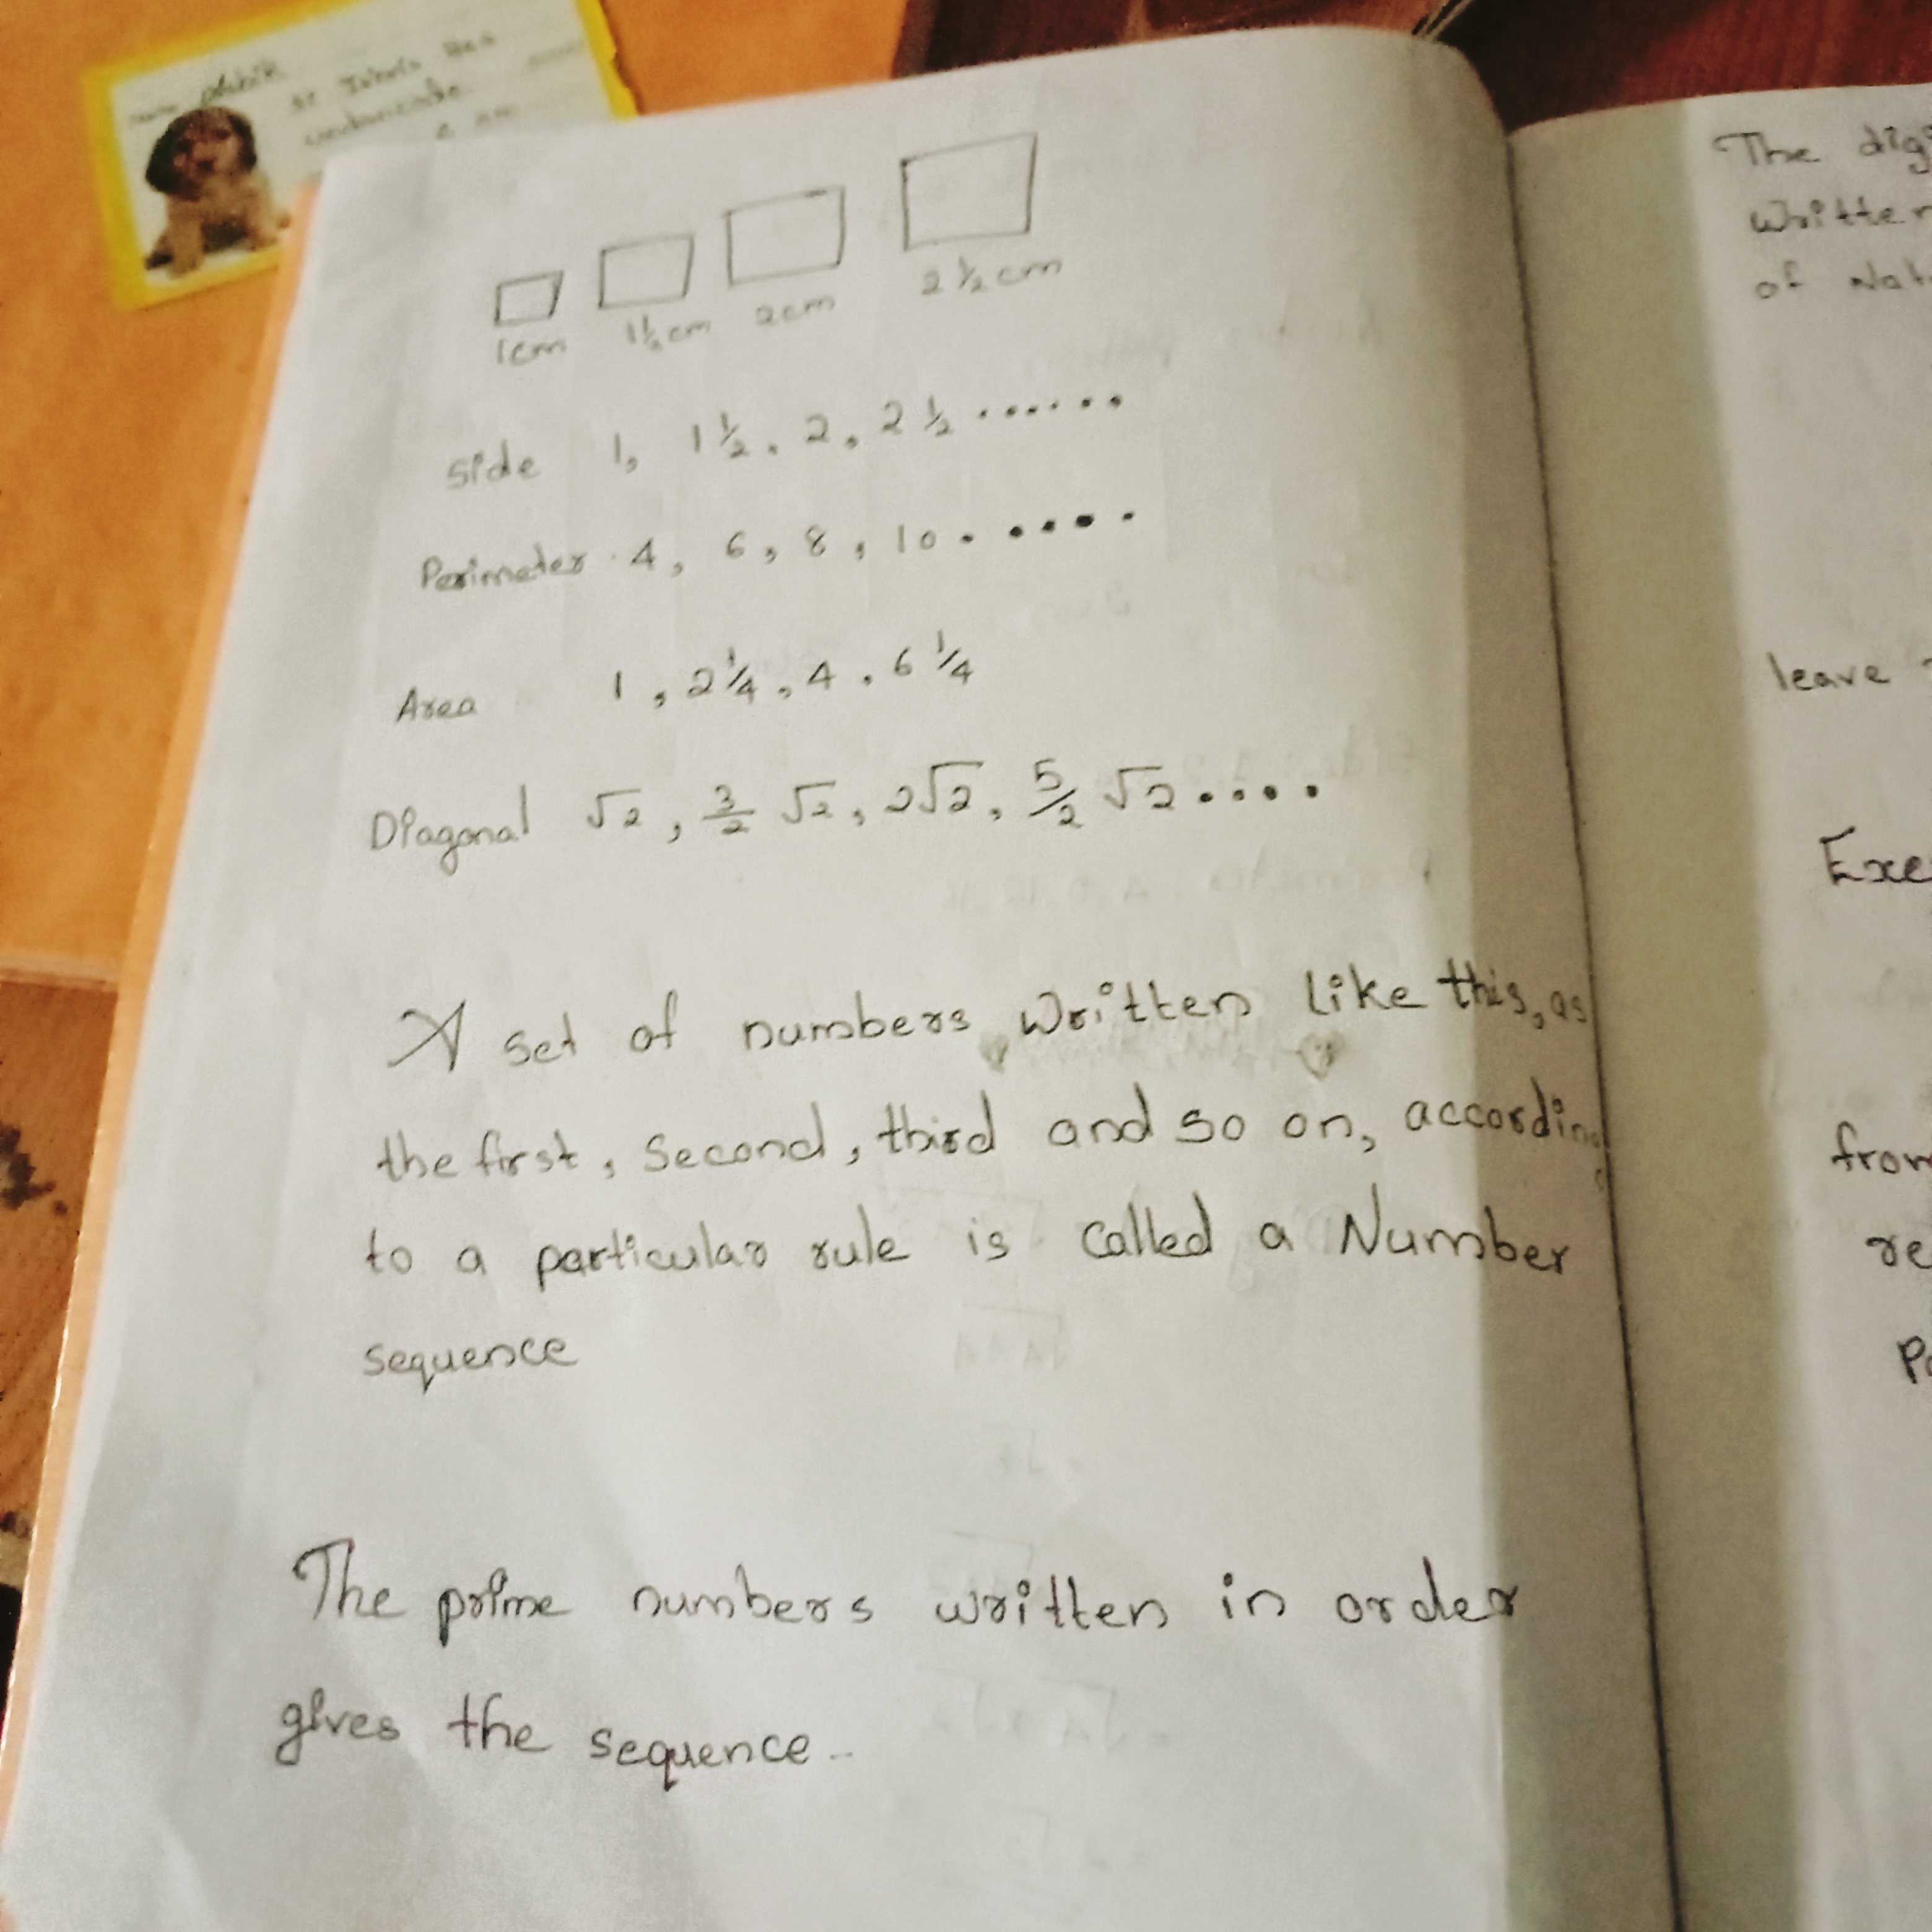 1cm 1½cm 2cm 2½cm
Side 1, 1½, 2, 2½ ......
Perimeter 4, 6, 8, 10. ....
Area 1, 2¼, 4, 6¼
Diagonal √2, 3/2 √2, 2√2, 5/2 √2....
A set of numbers written like this, as
the first, Second, third and so on, according
to a particular rule is called a Number
sequence
The prime numbers written in order
gives the sequence..
The digi
Written
of Natu
leave
Exe
from
re
Pa